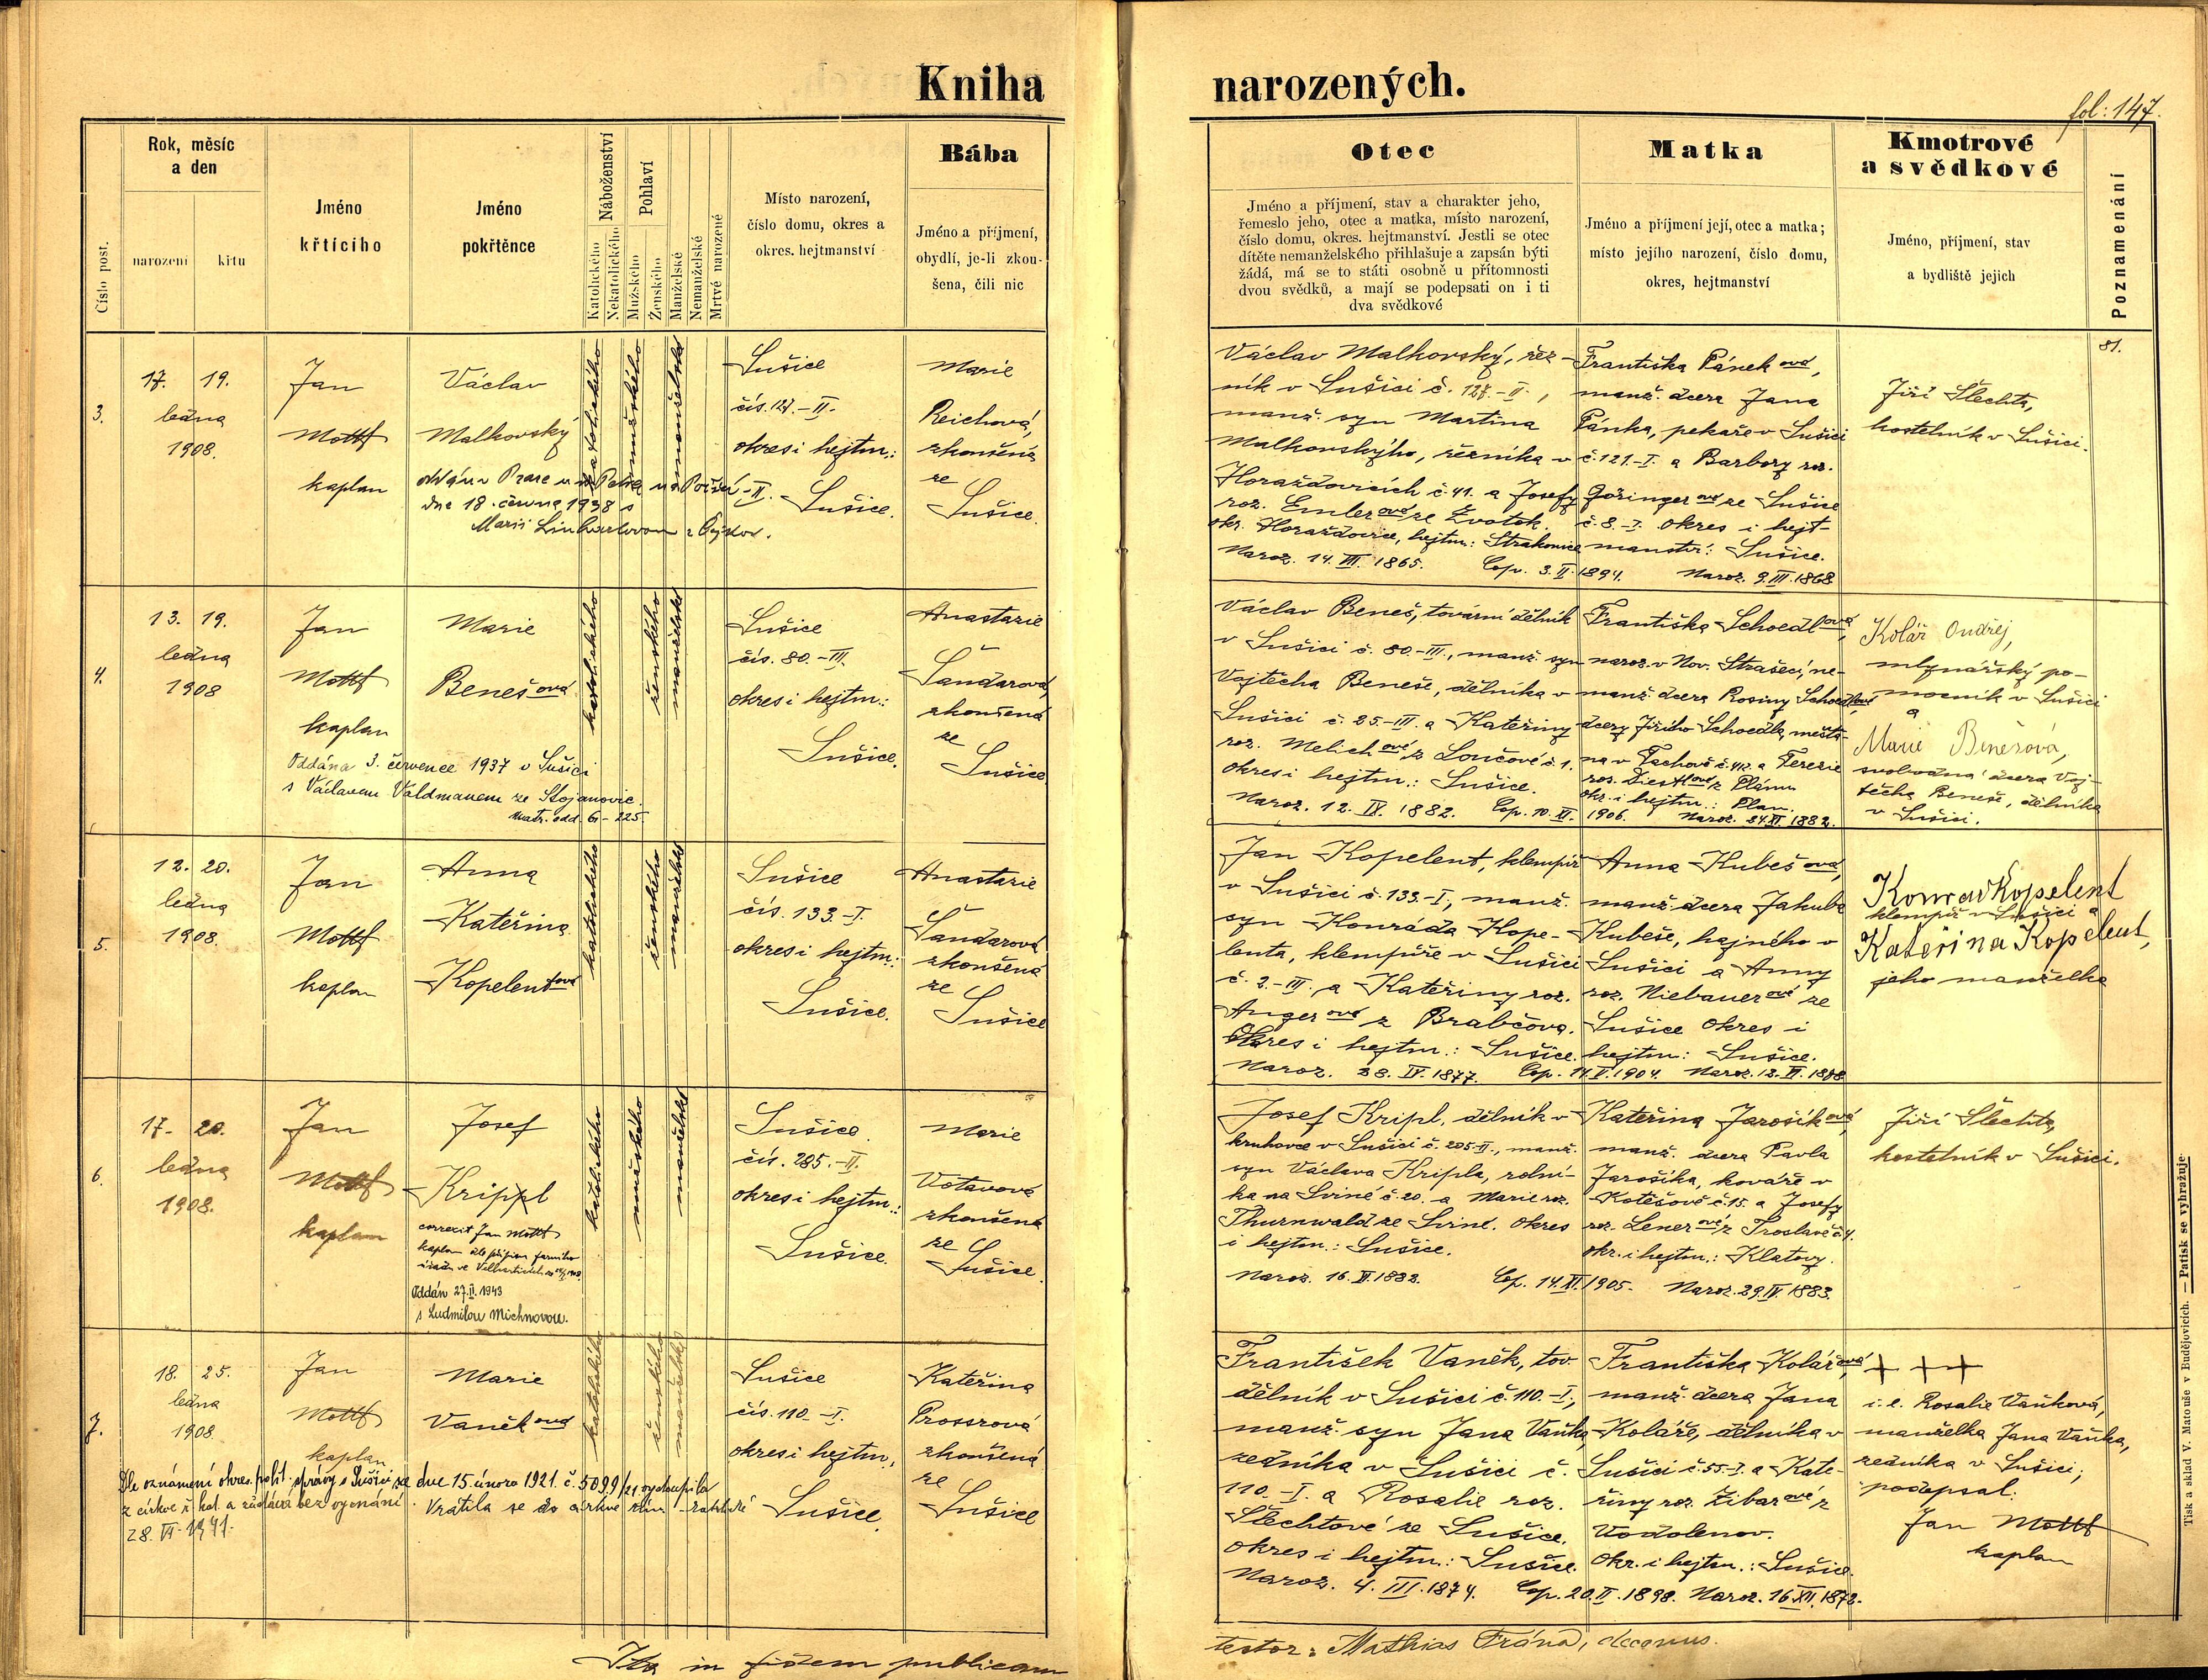 Kniha
narozených.
fol: 147.
Číslo post.
Rok, měsíc
a den
narození
křtu
Jméno
křtícího
Jméno
pokřtěnce
Náboženství
Katolického
Nekatolického
Pohlaví
Mužského
Ženského
Manželské
Nemanželské
Mrtvé narozené
Místo narození,
číslo domu, okres a
okres. hejtmanství
Bába
Jméno a příjmení,
obydlí, je-li zkou-
šena, čili nic
Otec
Jméno a příjmení, stav a charakter jeho,
řemeslo jeho, otec a matka, místo narození,
číslo domu, okres. hejtmanství. Jestli se otec
dítěte nemanželského přihlašuje a zapsán býti
žádá, má se to státi osobně u přítomnosti
dvou svědků, a mají se podepsati on i ti
dva svědkové
Matka
Jméno a příjmení její, otec a matka;
místo jejího narození, číslo domu,
okres, hejtmanství
Kmotrové
a svědkové
Jméno, příjmení, stav
a bydliště jejich
Poznamenání
81.
3.
17. 19.
ledna
1908.
Jan
Mottl
kaplan
Václav
Malkovský
oddán v Praze u sv. Petra na Poříčí-II.
dne 18. června 1938 s
Marií Linhartovou z
katolického
mužského
manželské
Sušice
čís. 127.-II.
okres i hejtm.:
Sušice.
Marie
Reichová,
zkoušená
ze
Sušice.
Václav Malkovský, řez-
ník v Sušici č. 127.-II.,
manž. syn Martina
Malkovského, řezníka v
Horažďovicích č. 41. a Josefy
roz. Emlerové ze Zvotok.
okr. Horažďovice, hejtm.: Strakonice
Naroz. 14. III. 1865. Cop. 3. II. 1894.
Františka Pánková,
manž. dcera Jana
Pánka, pekaře v Sušici
č. 121.-I. a Barbory roz.
Göringerové ze Sušice
č. 8.-I. okres i hejt-
manstv.: Sušice.
Naroz. 9. III. 1868
Jiří Šlechta,
kostelník v Sušici.
4.
13. 19.
ledna
1908
Jan
Mottl
kaplan
Marie
Benešová
Oddána 3. července 1937 v Sušici
s Václavem Valdmanem ze Stojanovic.
Matr. odd. G - 225.
katolického
ženského
manželské
Sušice
čís. 80.-III.
okres i hejtm.:
Sušice.
Anastazie
Šandarová
zkoušená
ze
Sušice
Václav Beneš, tovární dělník
v Sušici č. 80.-III., manž. syn
Vojtěcha Beneše, dělníka v
Sušici č. 25.-III. a Kateřiny
roz. Melichové z Lončové č. 1.
okres i hejtm.: Sušice.
Naroz. 12. IX. 1882. Cop. 10. XI. 1906.
Františka Schoedlová,
naroz. v Nov. Strašecí, ne-
manž. dcera Rosiny Schoedlové,
dcery Jiřího Schoedla, měšťa-
na v Tachově č. 412. a Terezie
roz. Diestlové z Plánu
okr. i hejtm.: Plan.
Naroz. 24. XI. 1882.
Kolář Ondřej,
mlynářský po-
mocník v Sušici
a
Marie Benešová,
svobodná dcera Voj-
těcha Beneše, dělníka
v Sušici.
5.
12. 20.
ledna
1908.
Jan
Mottl
kaplan
Anna
Kateřina
Kopelentová
katolického
ženského
manželské
Sušice
čís. 133.-I.
okres i hejtm.:
Sušice.
Anastazie
Šandarová
zkoušená
ze
Sušice
Jan Kopelent, klempíř
v Sušici č. 133.-I., manž.
syn Konráda Kope-
lenta, klempíře v Sušici
č. 2.-III., a Kateřiny roz.
Angerové z Brabčova.
Okres i hejtm.: Sušice.
Naroz. 28. IV. 1877. Cop. 11. V. 1904.
Anna Kubešová,
manž. dcera Jakuba
Kubeše, hajného v
Sušici a Anny
roz. Niebauerové ze
Sušice okres i
hejtm: Sušice.
Konrad Kopelent
klempíř v Sušici a
Kateřina Kopelent,
jeho manželka
6.
17. 20.
ledna
1908.
Jan
Mottl
kaplan
Josef
Krippl
correxit Jan Mottl
kaplan dle přípisu farního
úřadu ve Velharticích
Oddán 27. II. 1943
s Ludmilou Michnovou.
katolického
mužského
manželské
Sušice.
čís. 285.-II.
okres i hejtm.:
Sušice.
Marie
Votavová
zkoušená
ze
Sušice.
Josef Kripl, dělník v
kruhovce v Sušici č. 285.-II., manž.
syn Václava Kripla, rolní-
ka na Sviné č. 20. a Marie roz.
Thurnwald ze Svině. Okres
i hejtm.: Sušice.
Cop. 14. XI. 1905.
Kateřina Jarošíková,
manž. dcera Pavla
Jarošíka, kováře v
Kotěšově č. 15. a Josefy
roz. Lenerové z Troslavě č. 4.
okr. i hejtm.: Klatovy.
Naroz. 29. IV. 1883.
Jiří Šlechta,
kostelník v Sušici.
7.
18. 25.
ledna
1908
Jan
Mottl
kaplan
Marie
Vaňková
Dle oznámení okres. polit. správy v Sušici ze dne 15. února 1921 č. 5099/21 vystoupila
z církve ř. kat. a zůstává bez vyznání. Vrátila se do církve řím-katolické
28. VI. 1941.
katolického
ženského
manželské
Sušice
čís. 110.-I.
okres i hejtm.
Sušice.
Kateřina
Prossrová
zkoušená
ze
Sušice
František Vaněk, tov.
dělník v Sušici č. 110.-I.,
manž. syn Jana Vaňka,
zedníka v Sušici č.
110.-I a Rosalie roz.
Šlechtové ze Sušice.
okres i hejtm.: Sušice.
Naroz. 4. III. 1874. Cop. 20. II. 1898.
Františka Kolářová,
manž. dcera Jana
Koláře, dělníka v
Sušici č. 55.-I. a Kate-
řiny roz. Žibarové z
Vodolenov.
Okr. i hejtm.: Sušice.
Naroz. 16. XII. 1872.
+ + +
i. e. Rosalie Vaňková,
manželka Jana Vaňka,
zedníka v Sušici;
podepsal:
Jan Mottl
kaplan
Ita in fidem publicam
testor: Mathias Frána, decanus.
Tisk a sklad V. Matouše v Budějovicích. — Patisk se vyhražuje